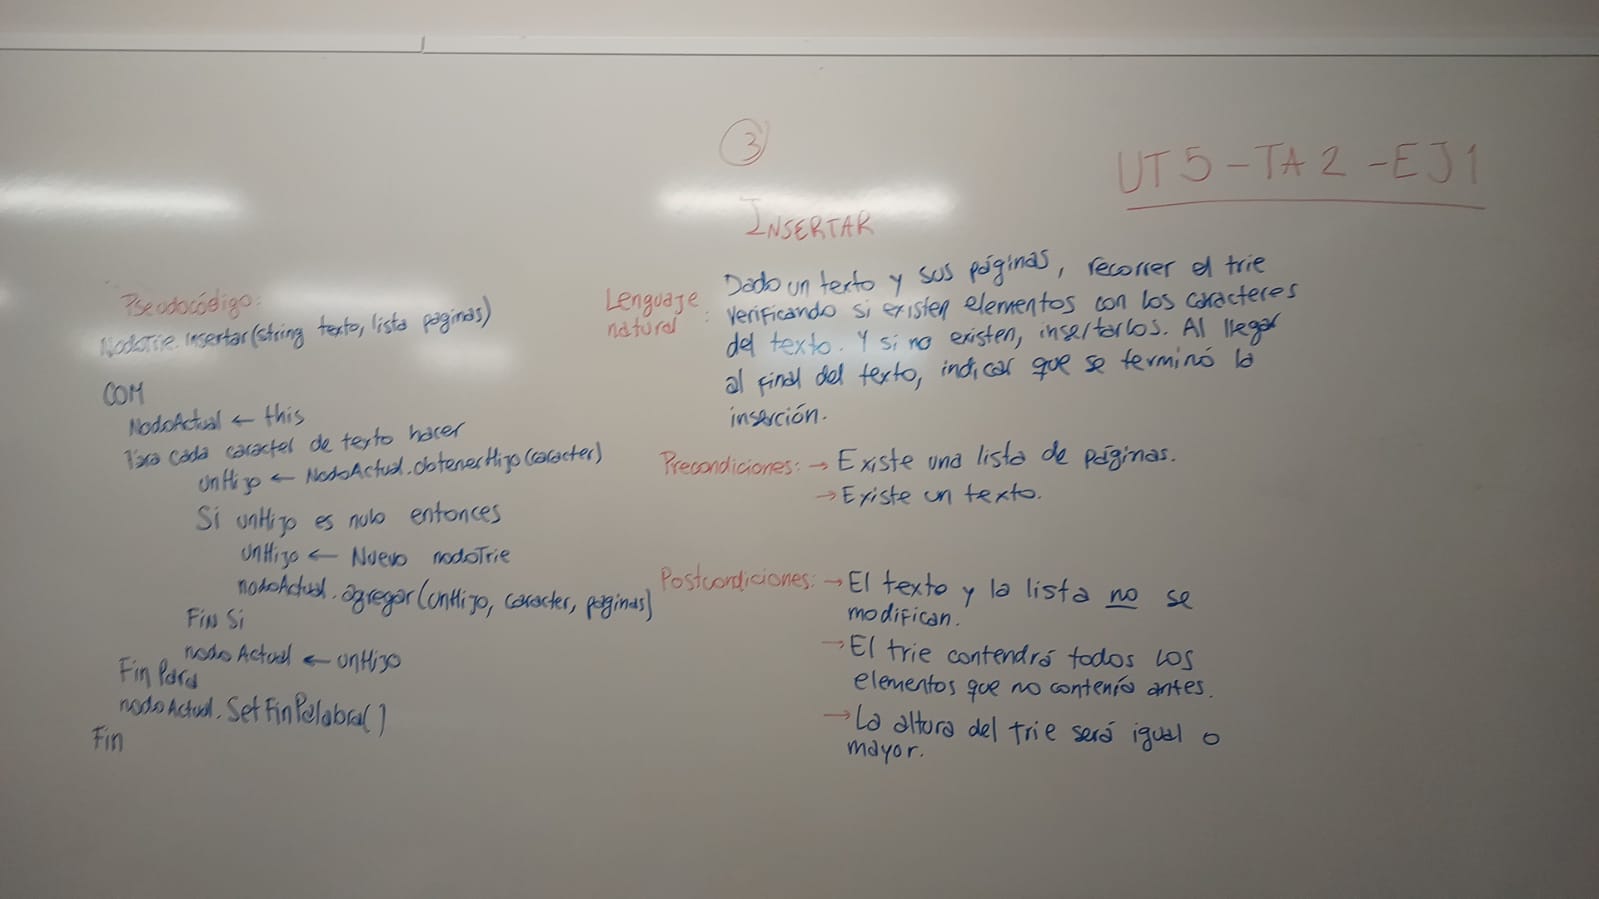 3
UT5-TA2-EJ1
INSERTAR
Pseudocódigo:
NodoTrie.insertar(string texto, lista paginas)
COM
NodoActual ← this
Para cada caracter de texto hacer
unHijo ← NodoActual.obtenerHijo(caracter)
Si unHijo es nulo entonces
unHijo ← Nuevo nodoTrie
nodoActual.agregar(unHijo, caracter, paginas)
Fin Si
nodoActual ← unHijo
Fin Para
nodoActual.SetFinPalabra()
Fin
Lenguaje
natural :
Dado un texto y sus páginas, recorrer el trie
verificando si existen elementos con los caracteres
del texto. Y si no existen, insertarlos. Al llegar
al final del texto, indicar que se terminó la
inserción.
Precondiciones: → Existe una lista de páginas.
→ Existe un texto.
Postcondiciones: → El texto y la lista no se
modifican.
→ El trie contendrá todos los
elementos que no contenía antes.
→ La altura del trie será igual o
mayor.